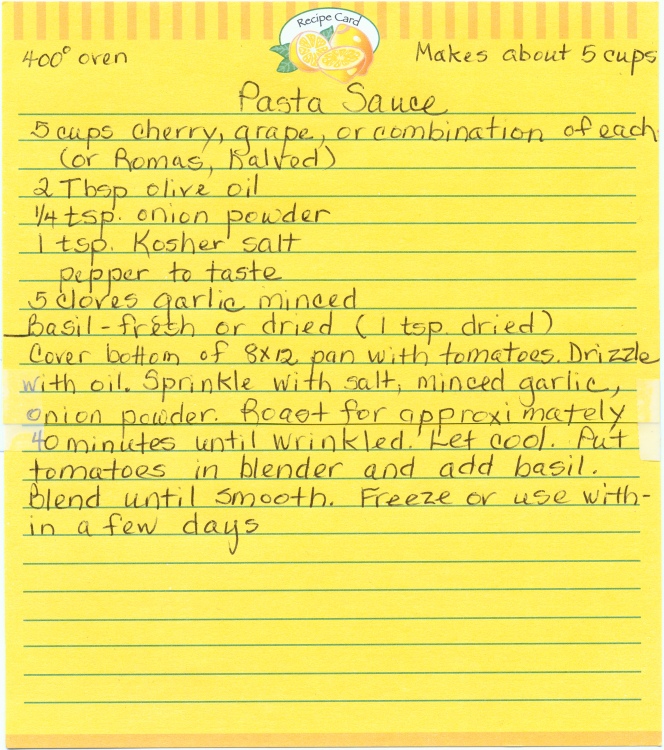 Recipe Card
400° oven
Makes about 5 cups
Pasta Sauce
5 cups cherry, grape, or combination of each
(or Romas, halved)
2 Tbsp olive oil
1/4 tsp. onion powder
1 tsp. Kosher salt
pepper to taste
5 cloves garlic minced
Basil - fresh or dried (1 tsp. dried)
Cover bottom of 8x12 pan with tomatoes. Drizzle
with oil. Sprinkle with salt, minced garlic,
onion powder. Roast for approximately
40 minutes until wrinkled. Let cool. Put
tomatoes in blender and add basil.
Blend until smooth. Freeze or use with-
in a few days